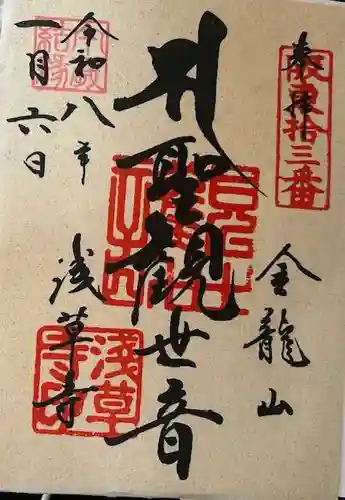 奉拝
坂東拾三番
金龍山
聖観世音
浅草寺
浅草寺
令和八年
一月六日